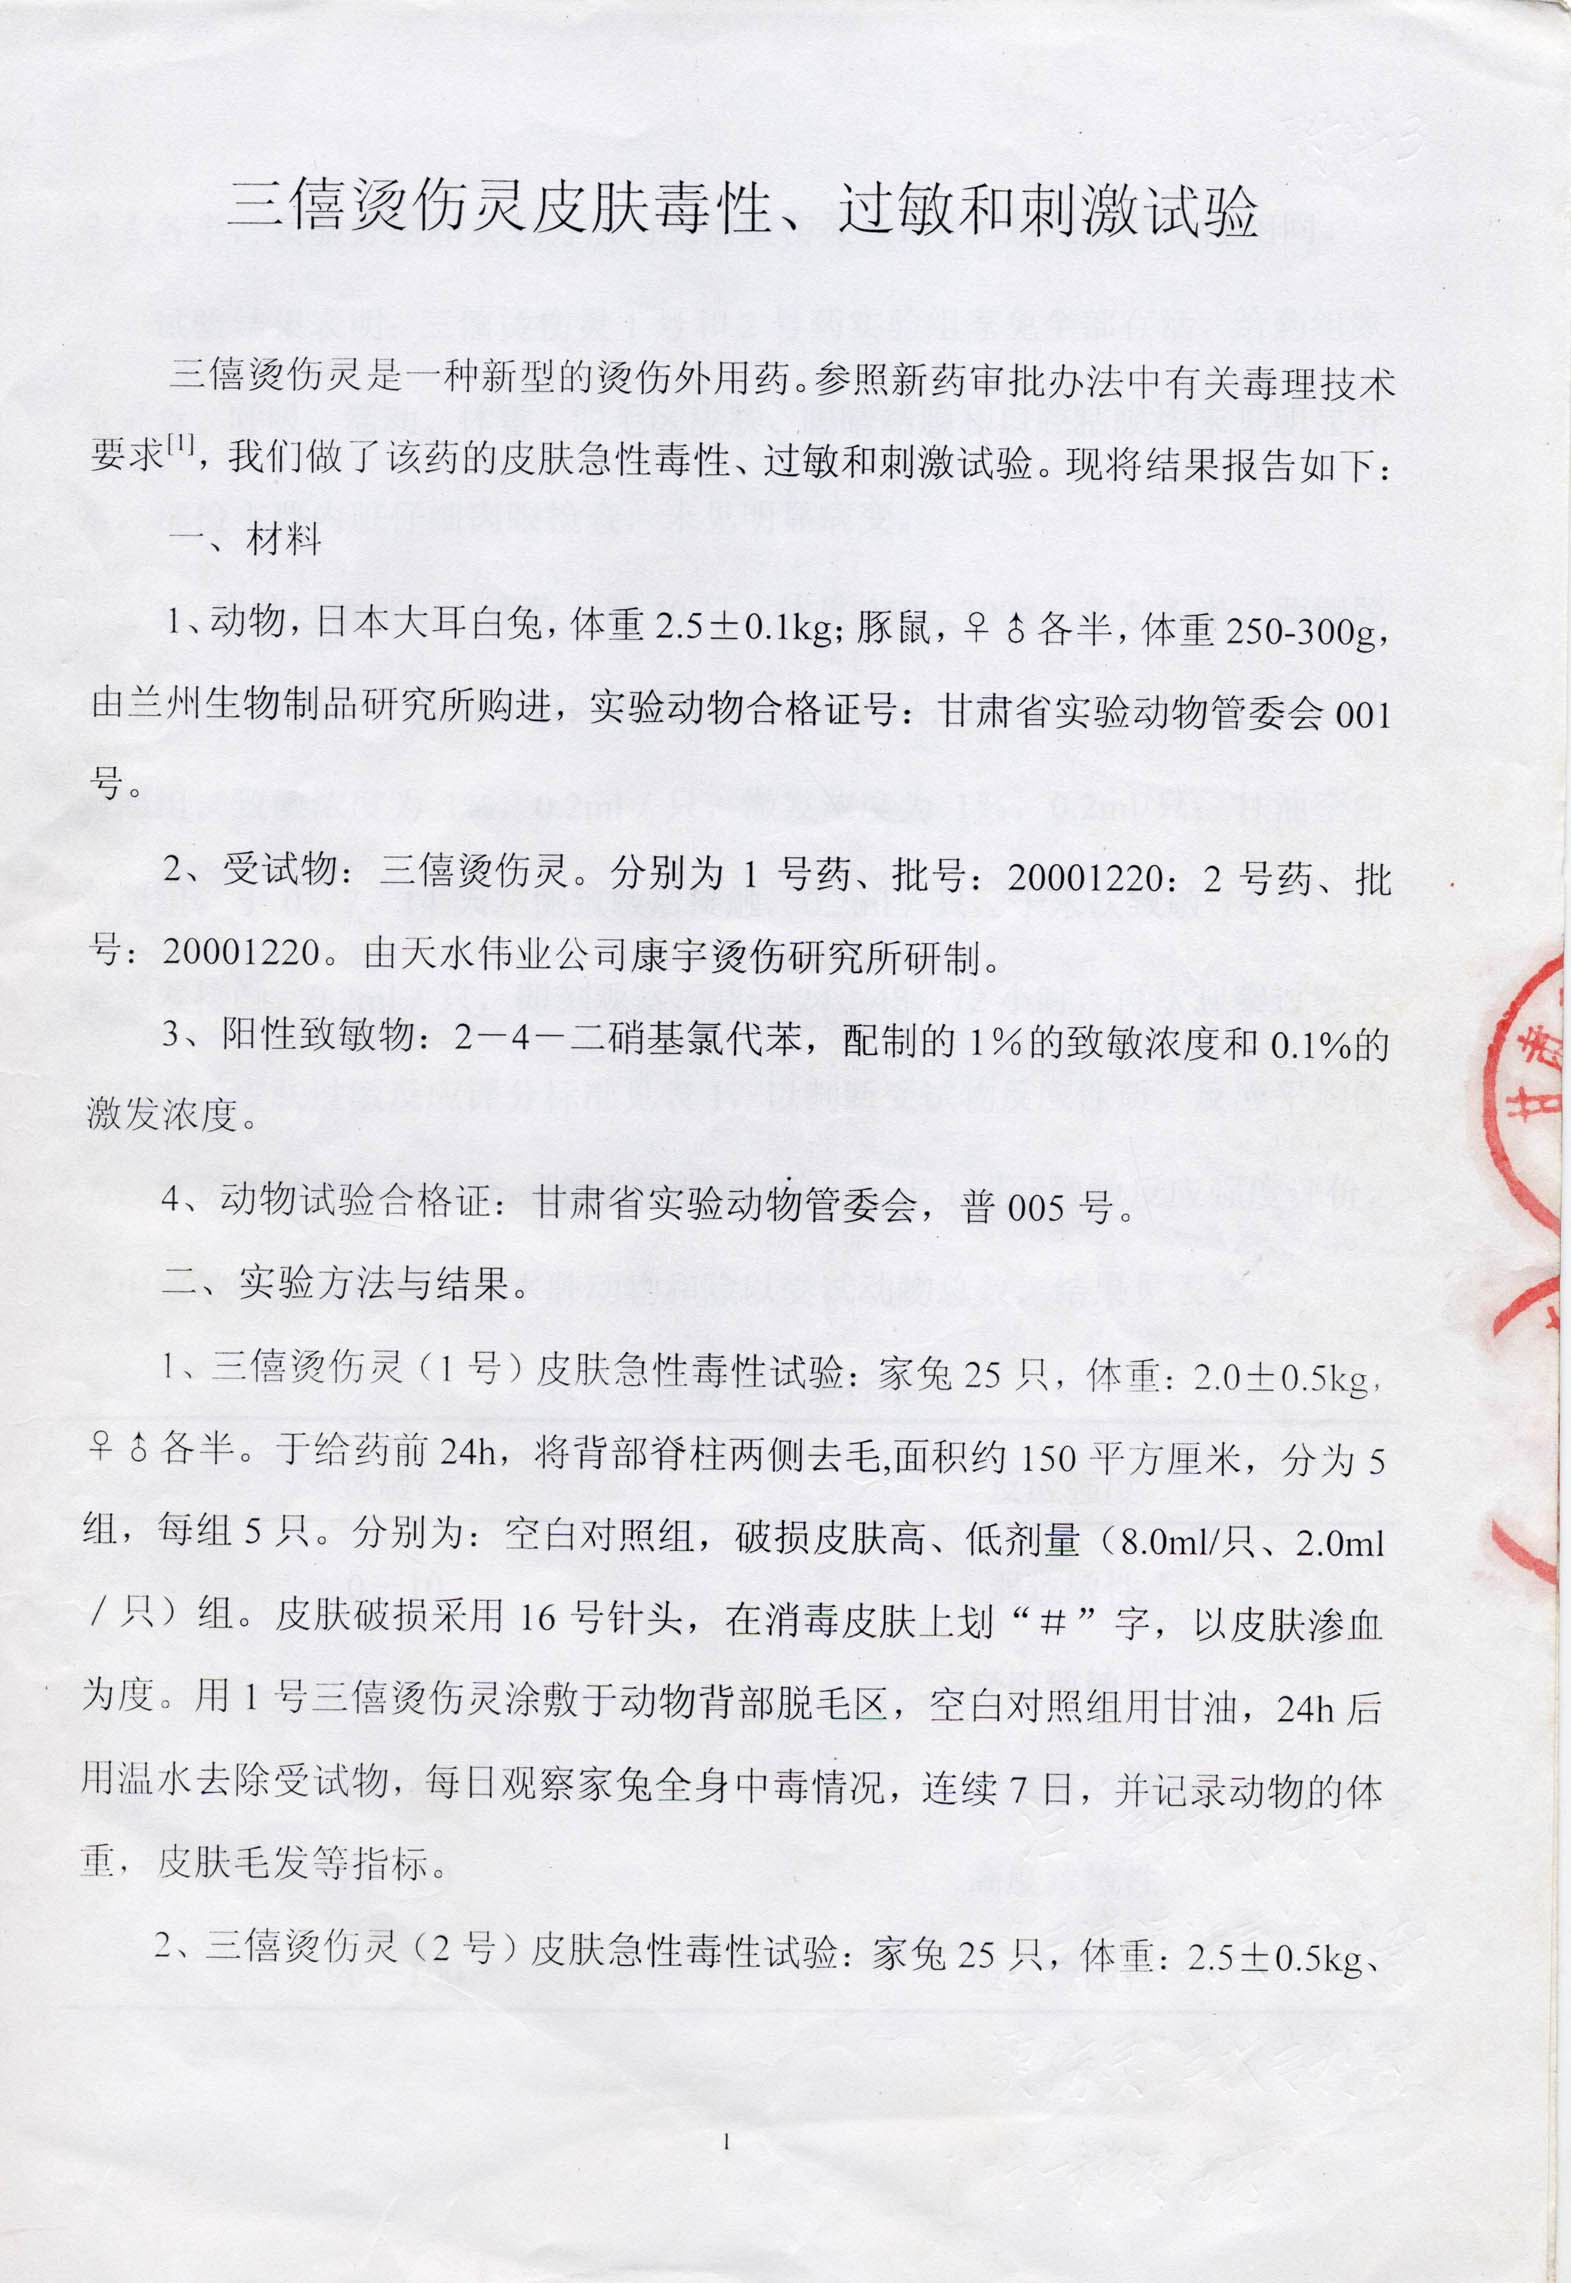 三僖烫伤灵皮肤毒性、过敏和刺激试验
三僖烫伤灵是一种新型的烫伤外用药。参照新药审批办法中有关毒理技术
要求[1]，我们做了该药的皮肤急性毒性、过敏和刺激试验。现将结果报告如下：
一、材料
1、动物，日本大耳白兔，体重 2.5±0.1kg；豚鼠，♀♂各半，体重 250-300g，
由兰州生物制品研究所购进，实验动物合格证号：甘肃省实验动物管委会 001
号。
2、受试物：三僖烫伤灵。分别为 1 号药、批号：20001220：2 号药、批
号：20001220。由天水伟业公司康宇烫伤研究所研制。
3、阳性致敏物：2－4－二硝基氯代苯，配制的 1％的致敏浓度和 0.1%的
激发浓度。
4、动物试验合格证：甘肃省实验动物管委会，普 005 号。
二、实验方法与结果。
1、三僖烫伤灵（1 号）皮肤急性毒性试验：家兔 25 只，体重：2.0±0.5kg，
♀♂各半。于给药前 24h，将背部脊柱两侧去毛,面积约 150 平方厘米，分为 5
组，每组 5 只。分别为：空白对照组，破损皮肤高、低剂量（8.0ml/只、2.0ml
/只）组。皮肤破损采用 16 号针头，在消毒皮肤上划“＃”字，以皮肤渗血
为度。用 1 号三僖烫伤灵涂敷于动物背部脱毛区，空白对照组用甘油，24h 后
用温水去除受试物，每日观察家兔全身中毒情况，连续 7 日，并记录动物的体
重，皮肤毛发等指标。
2、三僖烫伤灵（2 号）皮肤急性毒性试验：家兔 25 只，体重：2.5±0.5kg、
1
甘肃